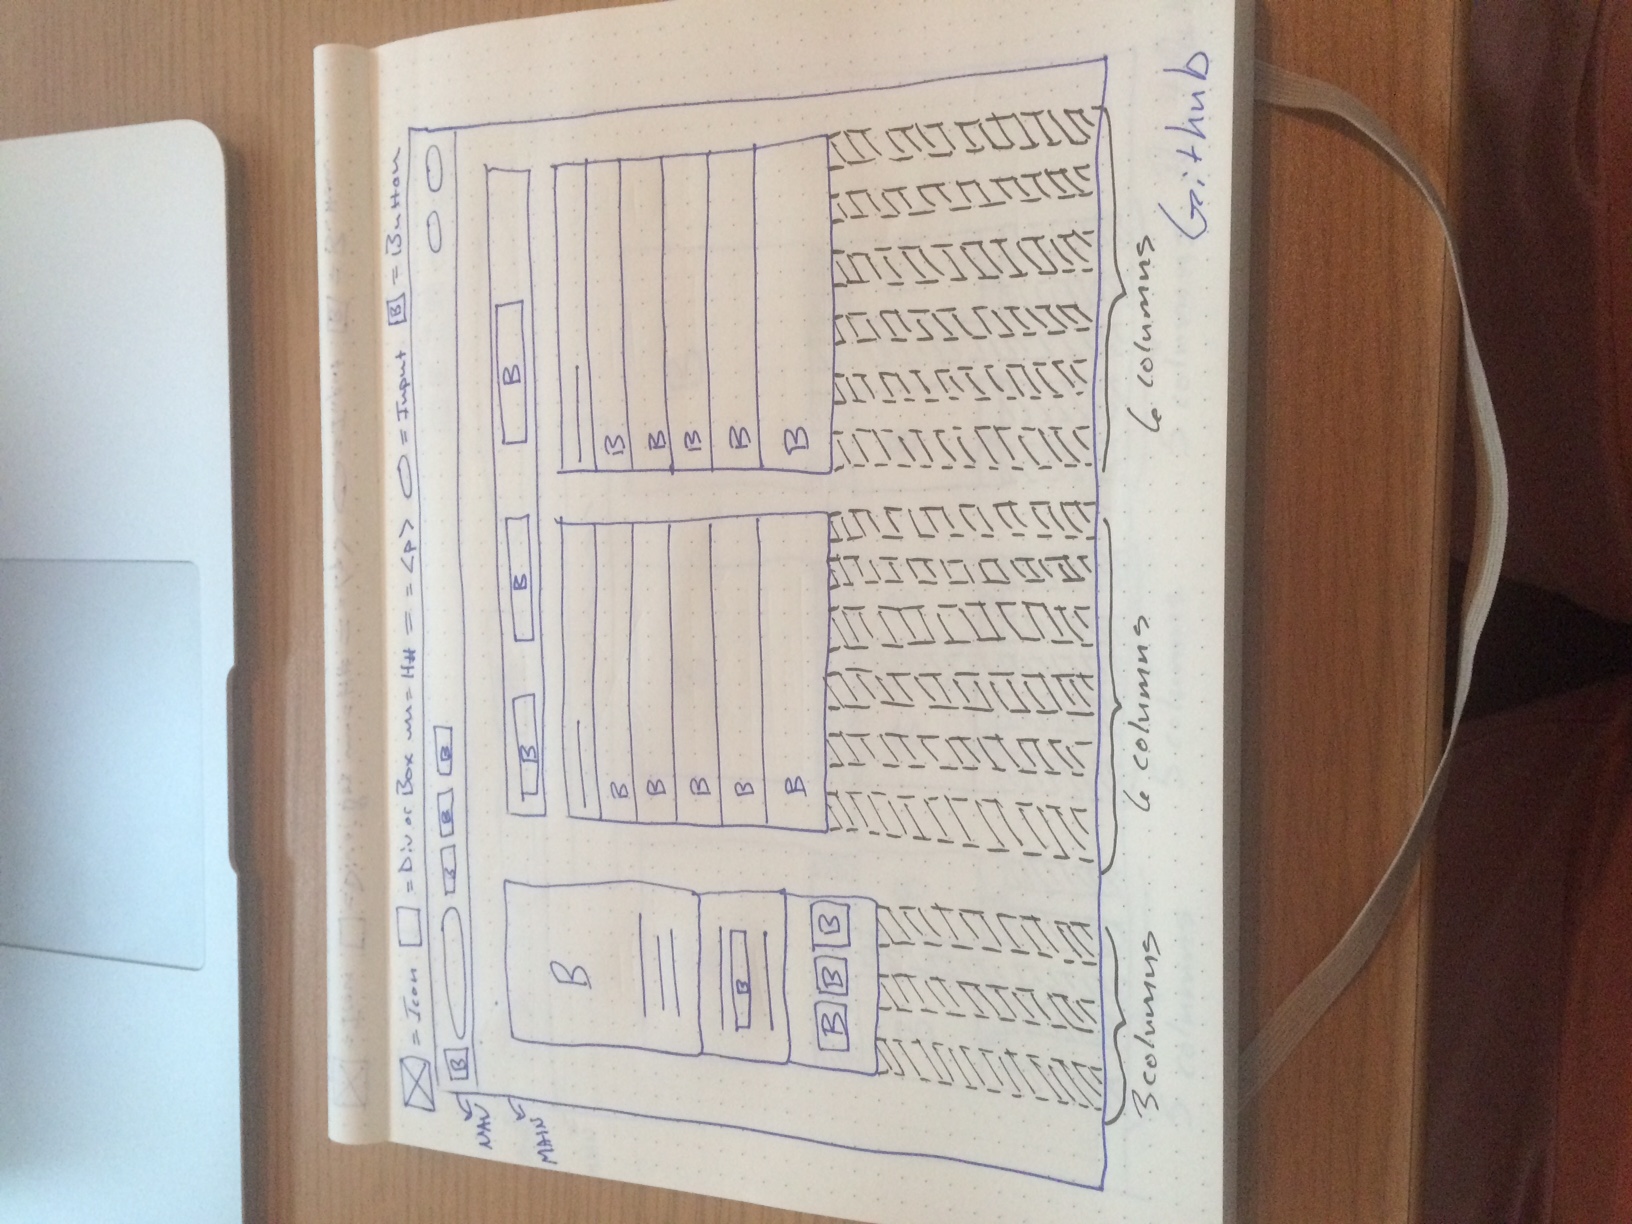 = Icon = Div or Box = H# = <p> = Input B = Button
B B B B
NAV
MAIN
B B B
B
B B
B B
B B
B B
B B
B
B B B
3 columns 6 columns 6 columns
Github